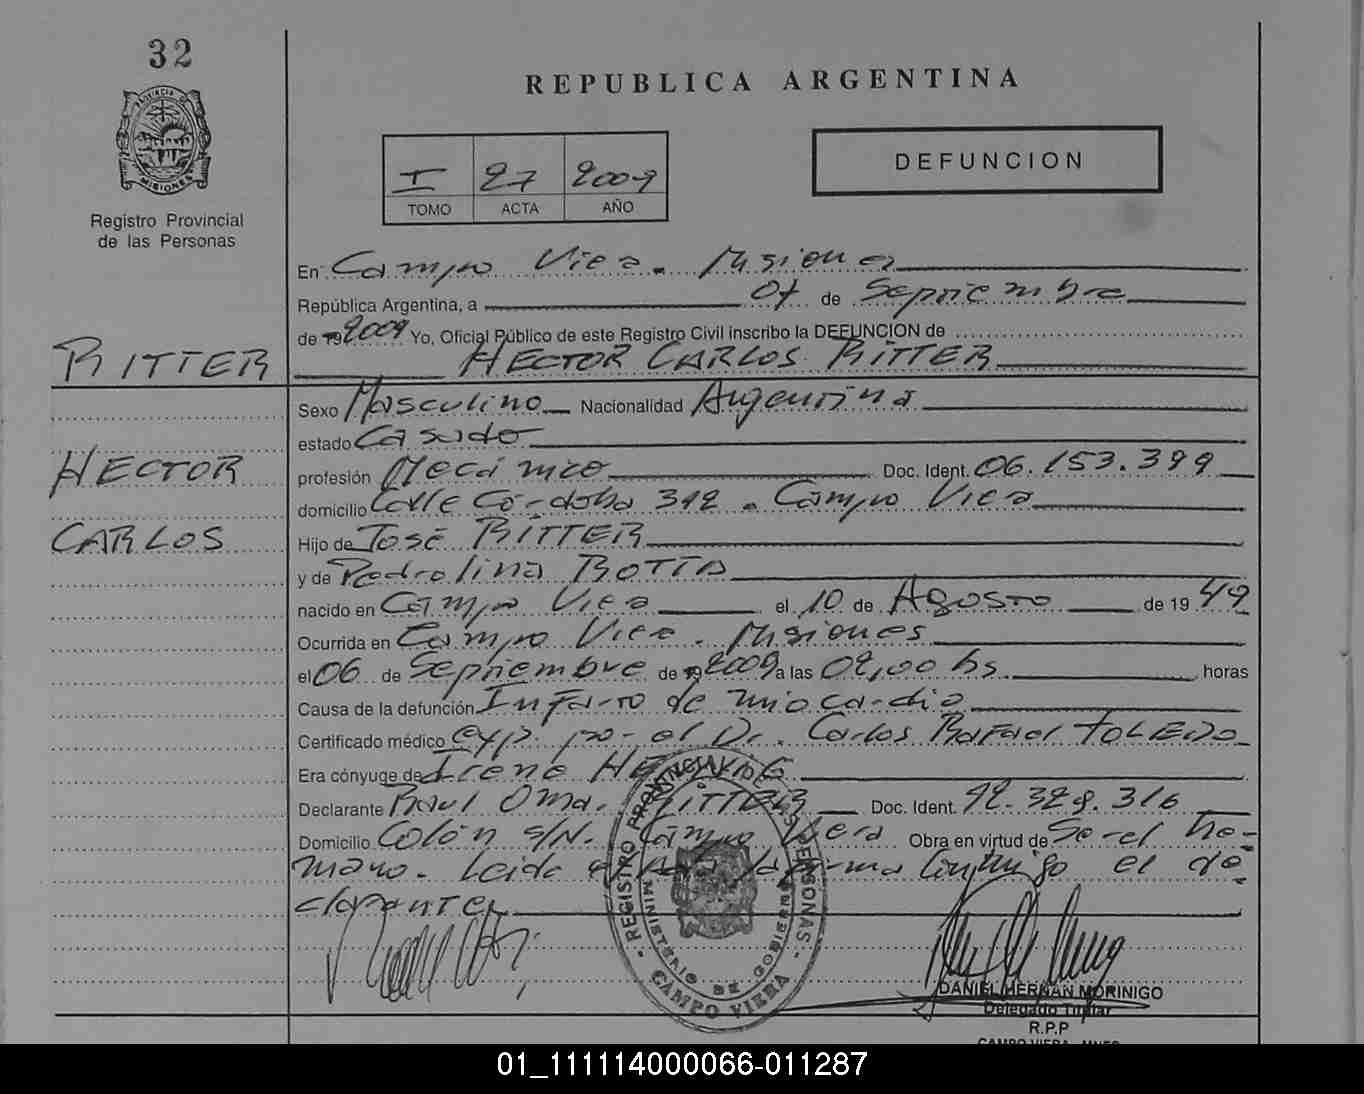 32
PROVINCIA DE
MISIONES
Registro Provincial
de las Personas
RITTER
HECTOR
CARLOS
REPUBLICA ARGENTINA
I 27 2009
TOMO ACTA AÑO
DEFUNCION
En Campo Viera. Misiones
República Argentina, a 07 de Septiembre
de 19 2009 Yo, Oficial Público de este Registro Civil inscribo la DEFUNCION de
HECTOR CARLOS RITTER
Sexo Masculino Nacionalidad Argentina
estado Casado
profesión Mecánico Doc. Ident. 06.153.399
domicilio Calle Córdoba 392. Campo Viera
Hijo de José RITTER
y de Pedrolina BOTTA
nacido en Campo Viera el 10 de Agosto de 19 49
Ocurrida en Campo Viera. Misiones
el 06 de Septiembre de 19 2009 a las 02,00 hs horas
Causa de la defunción Infarto de miocardio
Certificado médico exp. por el Dr. Carlos Rafael TOLEDO
Era cónyuge de Irene
Declarante Raul Omar RITTER Doc. Ident. 12.328.316
Domicilio Colón s/N. Campo Viera Obra en virtud de Ser el her-
mano. Leida el Acta la firma conmigo el de-
clarante
REGISTRO PROVINCIAL DE LAS PERSONAS
MINISTERIO DE GOBIERNO
CAMPO VIERA
DANIEL HERNAN MORINIGO
Delegado Titular
R.P.P
CAMPO VIERA - MNES
01_111114000066-011287